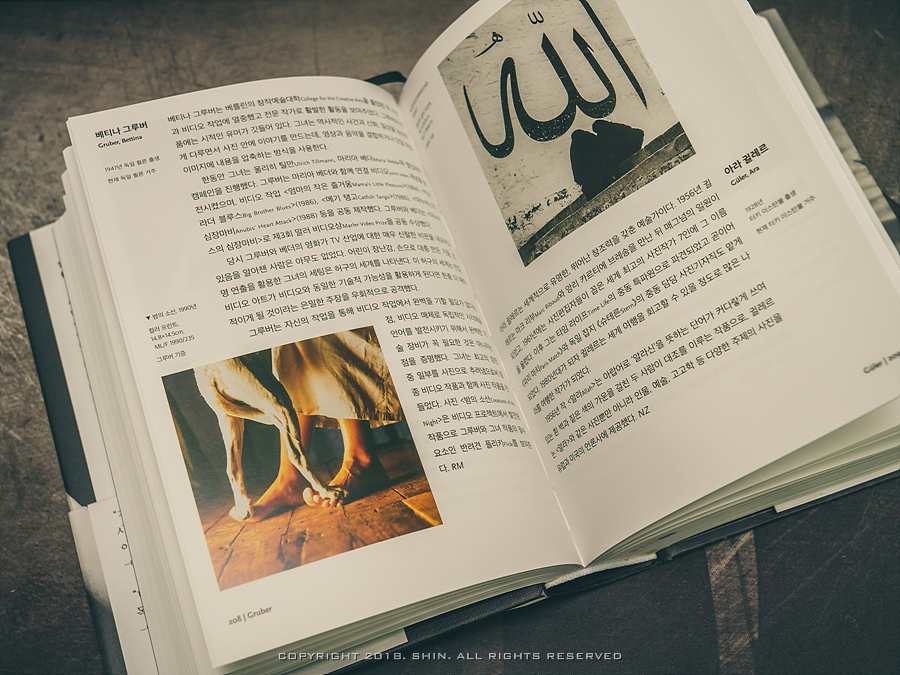 베티나 그루버
Gruber, Bettina
1947년 독일 쾰른 출생
현재 독일 쾰른 거주
베티나 그루버는 베를린의 창작예술대학College for the Creative Arts를 졸업한
과 비디오 작업에 열중했고 전문 작가로 활발한 활동을 보여주었다.
품에는 시적인 유머가 깃들어 있다. 그녀는 역사적인 사건과 신화,
게 다루면서 사진 안에 이야기를 만드는데, 영상과 음악을 결합하거나
이미지에 내용을 압축하는 방식을 사용한다.
한동안 그녀는 울리히 틸만Ulrich Tillmann, 마리아 베더Maria Vedder
캠페인을 진행했다. 그루버는 마리아 베더와 함께 연출 비디오
전시켰으며, 비디오 작업 <엄마의 작은 즐거움Mama's Little Pleasure>(1984),
라더 블루스Big Brother Blues>(1986), <메기 탱고Catfish Tango>(1986),
심장마비Anubis' Heart Attack>(1988) 등을 공동 제작했다. 그루버와 베더는
스의 심장마비>로 제3회 말러 비디오상Marler Video Prize을 공동 수상했다.
당시 그루버와 베더의 영화가 TV 산업에 대한 매우 신랄한 비판을
있음을 알아챈 사람은 아무도 없었다. 어린이 장난감, 손으로 대충 만든
명 연출을 활용한 그녀의 세팅은 허구의 세계를 나타낸다. 이 허구의 세계는
비디오 아트가 비디오와 동일한 기술적 가능성을 활용하게 된다면
적이게 될 것이라는 은밀한 주장을 우회적으로 공격했다.
그루버는 자신의 작업을 통해 비디오 작업에서 완벽을 기할 필요가
점, 비디오 매체로 독립적인 시각
언어를 발전시키기 위해서 완벽한
술 장비가 꼭 필요한 것은 아니라는
점을 증명했다. 그녀는 최고의
중 일부를 사진으로 추려냈으며,
종 비디오 작품과 함께 사진 작품을
들었다. 사진 <밤의 소산Creatures of the
Night>은 비디오 프로젝트에서 발전한
작품으로 그루버와 그녀 작품의
요소인 반려견 플리카Flicka를 보여준
다. RM
▼ 밤의 소산, 1990년
컬러 프린트,
14.8×14.5cm,
ML/F 1990/235
그루버 기증
208 | Gruber
الله
아라 귈레르
Güler, Ara
1928년
터키 이스탄불 출생
현재 터키 이스탄불 거주
아라 귈레르는 세계적으로 유명한, 뛰어난 창조력을 갖춘 예술가이다. 1956년 귈
레르는 마크 리부Marc Riboud와 앙리 카르티에 브레송을 만난 뒤 매그넘의 일원이
되었고, 1961년에는 사진편집자들이 꼽은 세계 최고의 사진작가 7인에 그 이름
을 올렸다. 이후 그는 타임 라이프Time Life의 중동 특파원으로 파견되었고 곧이어
《파리 마치Paris Match》와 독일 잡지 《슈테른Stern》의 중동 담당 사진기자직도 맡게
되었다. 1980년대가 되자 귈레르는 세계 여행을 회고할 수 있을 정도로 많은 나
라를 여행한 작가가 되었다.
1956년 작 <알라Allah>는 아랍어로 '알라신'을 뜻하는 단어가 커다랗게 쓰여
있는 흰 벽과 짙은 색의 가운을 걸친 두 사람이 대조를 이루는 작품으로, 귈레르
는 <알라>와 같은 사진뿐만 아니라 인물, 예술, 고고학 등 다양한 주제의 사진을
유럽과 미국의 언론사에 제공했다. NZ
Güler | 209
COPYRIGHT 2018. SHIN. ALL RIGHTS RESERVED